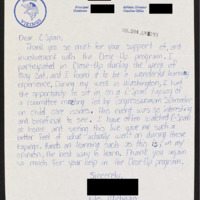 Principal
Athletic Director
VIKINGS
Dear C-Span,
Thank you so much for your support of, and
involvement with the Close-Up program. I
participated in Close-Up during the week of
May 3rd, and I found it to be a wonderful
experience. During my week in Washington, I had
the opportunity to sit in on a C-Span taping of
a committee meeting led by Congresswoman Schroeder
on child care issues. This meeting was so
beneficial to see. I have often watched C-Span
at home, and seeing this live gave me such a
better feel of what actually went on during these
tapings. Hands on learning such as this is, in my
opinion, the best way to learn. Thank you again
so much for your help in the Close-Up program.
Sincerely,